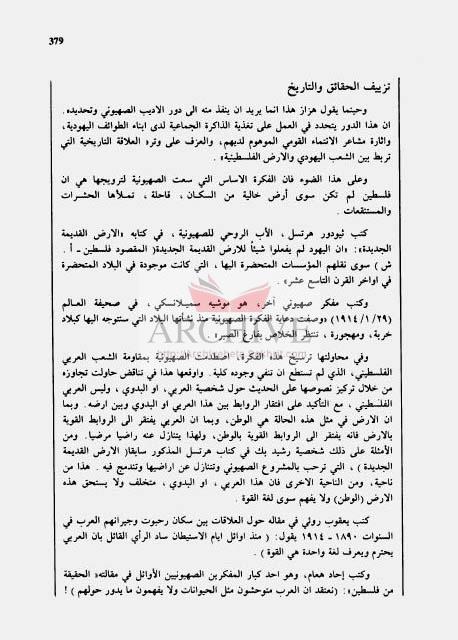 379
تزييف الحقائق والتاريخ
وحينما يقول هزاز هذا انما يريد ان ينفذ منه الى دور الاديب الصهيوني وتحديده.
ان هذا الدور يتحدد في العمل على تغذية الذاكرة الجماعية لدى ابناء الطوائف اليهودية،
واثارة مشاعر الانتماء القومي الموهوم لديهم، والعزف على وتر« العلاقة التاريخية التي
تربط بين الشعب اليهودي والارض الفلسطينية» .
وعلى هذا الضوء فان الفكرة الاساس التي سعت الصهيونية لترويجها هي ان
فلسطين لم تكن سوى أرض خالية من السكان ، قاحلة ، تملأها الحشرات
والمستنقعات .
كتب ثيودور هرتسل ، الأب الروحي للصهيونية ، في كتابه «الارض القديمة
الجديدة»: «ان اليهود لم يفعلوا شيئاً للارض القديمة الجديدة( المقصود فلسطين - أ .
ش ) سوى نقلهم المؤسسات المتحضرة اليها ، التي كانت موجودة في البلاد المتحضرة
في اواخر القرن التاسع عشر» .
وكتب مفكر صهيوني آخر، هو موشيه سميلانسكي، في صحيفة العالم
(١٩١٤/١/٢٩) «وصفت دعاية الفكرة الصهيونية منذ نشأتها البلاد التي سنتوجه اليها كبلاد
خربة، ومهجورة ، تنتظر الخلاص بفارغ الصبر» .
ARCHIVE
وفي محاولتها ترسيخ هذه الفكرة، اصطدمت الصهيونية بمقاومة الشعب العربي
الفلسطيني، الذي لم تستطع ان تنفي وجوده كلية . واوقعها هذا في تناقض حاولت تجاوزه
من خلال تركيز نصوصها على الحديث حول شخصية العربي، او البدوي ، وليس العربي
الفلسطيني ، مع التأكيد على افتقار الروابط بين هذا العربي او البدوي وبين ارضه. وبما
ان الارض في مثل هذه الحالة هي الوطن، وبما ان العربي يفتقر الى الروابط القوية
بالارض فانه يفتقر الى الروابط القوية بالوطن، ولهذا يتنازل عنه راضيا مرضيا. ومن
الأمثلة على ذلك شخصية رشيد بك في كتاب هرتسل المذكور سابقا( الارض القديمة
الجديدة ) ، التي ترحب بالمشروع الصهيوني وتتنازل عن اراضيها وتندمج فيه . هذا من
ناحية، ومن الناحية الاخرى فان هذا العربي ، او البدوي ، متخلف ولا يستحق هذه
الارض (الوطن) ولا يفهم سوى لغة القوة .
كتب يعقوب روئي في مقاله حول العلاقات بين سكان رحبوت وجيرانهم العرب في
السنوات ١٨٩٠ - ١٩١٤ يقول: ( منذ اوائل ايام الاستيطان ساد الرأي القائل بان العربي
يحترم ويعرف لغة واحدة هي القوة ) .
وكتب إحاد هعام، وهو احد كبار المفكرين الصهيونيين الأوائل في مقالته« الحقيقة
من فلسطين»: (نعتقد ان العرب متوحشون مثل الحيوانات ولا يفهمون ما يدور حولهم ) !